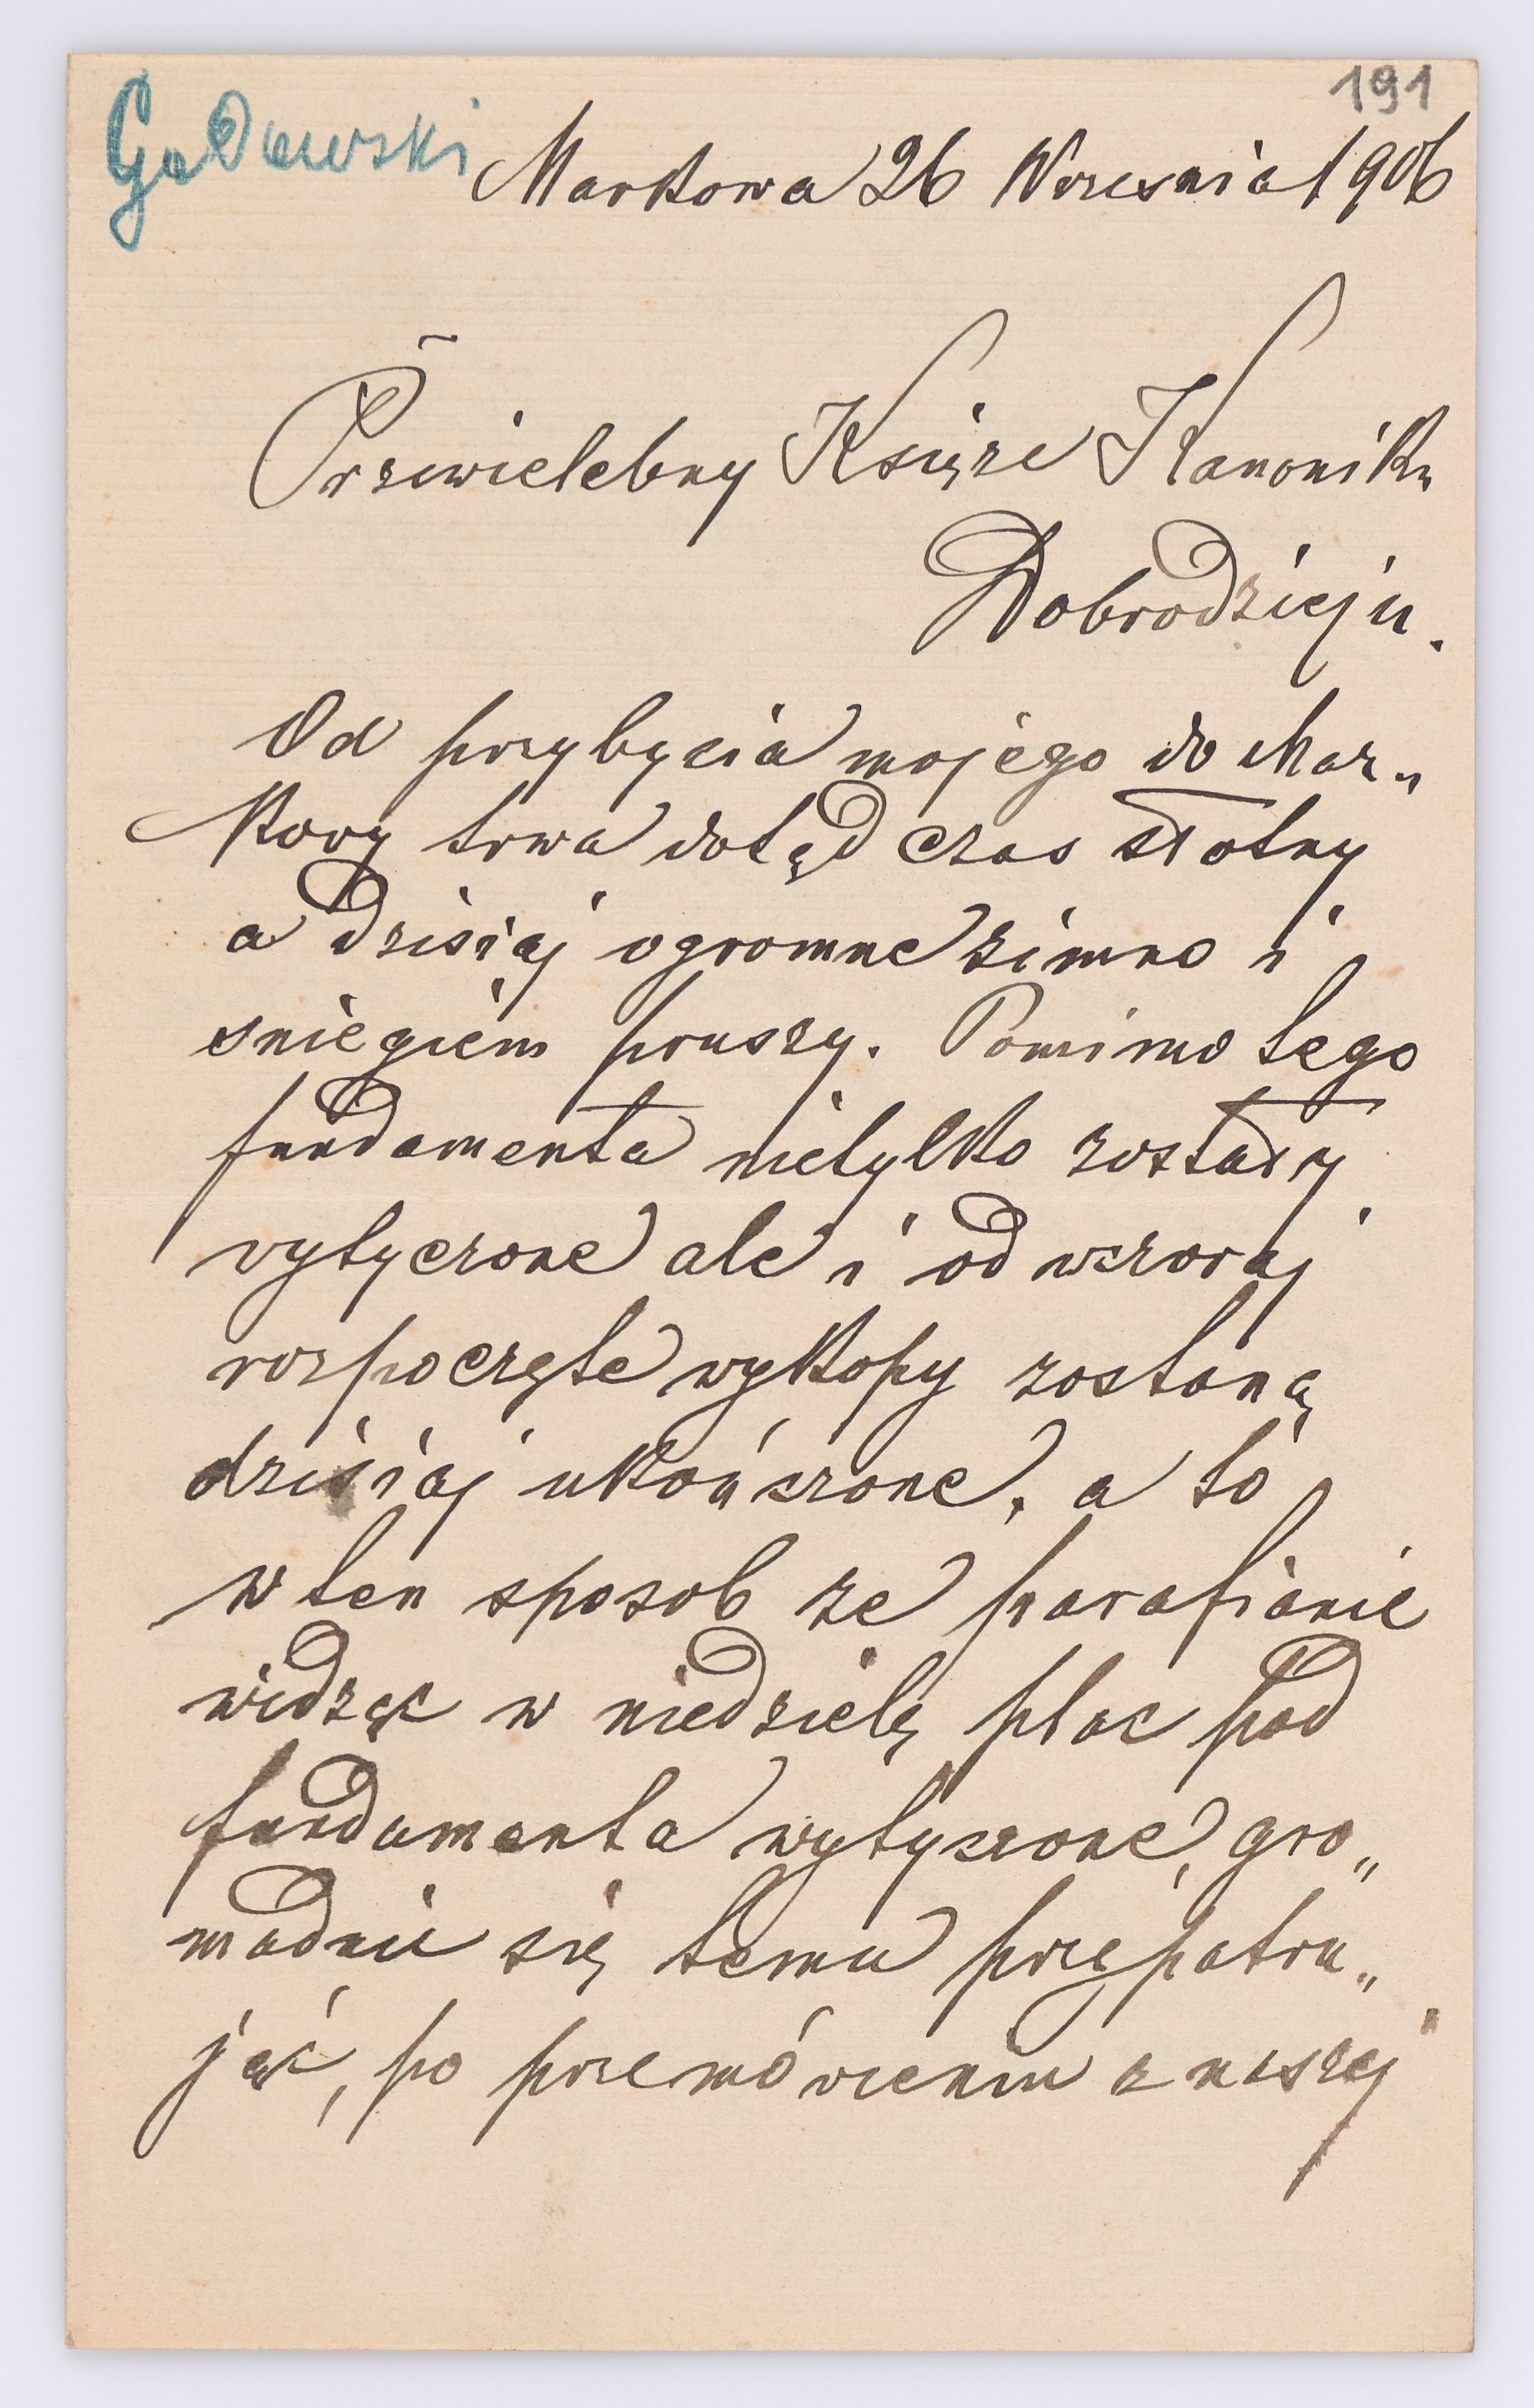 191
Gadowski
Markowa 26 Wrzesnia 1906
Przewielebny Księże Kanoniku
Dobrodzieju.
Od przybycia mojego do Mar„
kowy trwa dotąd czas słotny
a dzisiaj ogromne zimno i
sniegiem pruszy. Pomimo tego
fundamenta nietylko zostały
wytyczone ale i od wczoraj
rozpoczęte wykopy zostaną
dzisiaj ukończone, a to
w ten sposob ze parafianie
widząc w niedzielę plac pod
fundamenta wytyczone, gro„
madnie się temu przypatru„
jąć, po przemówieniu z naszej